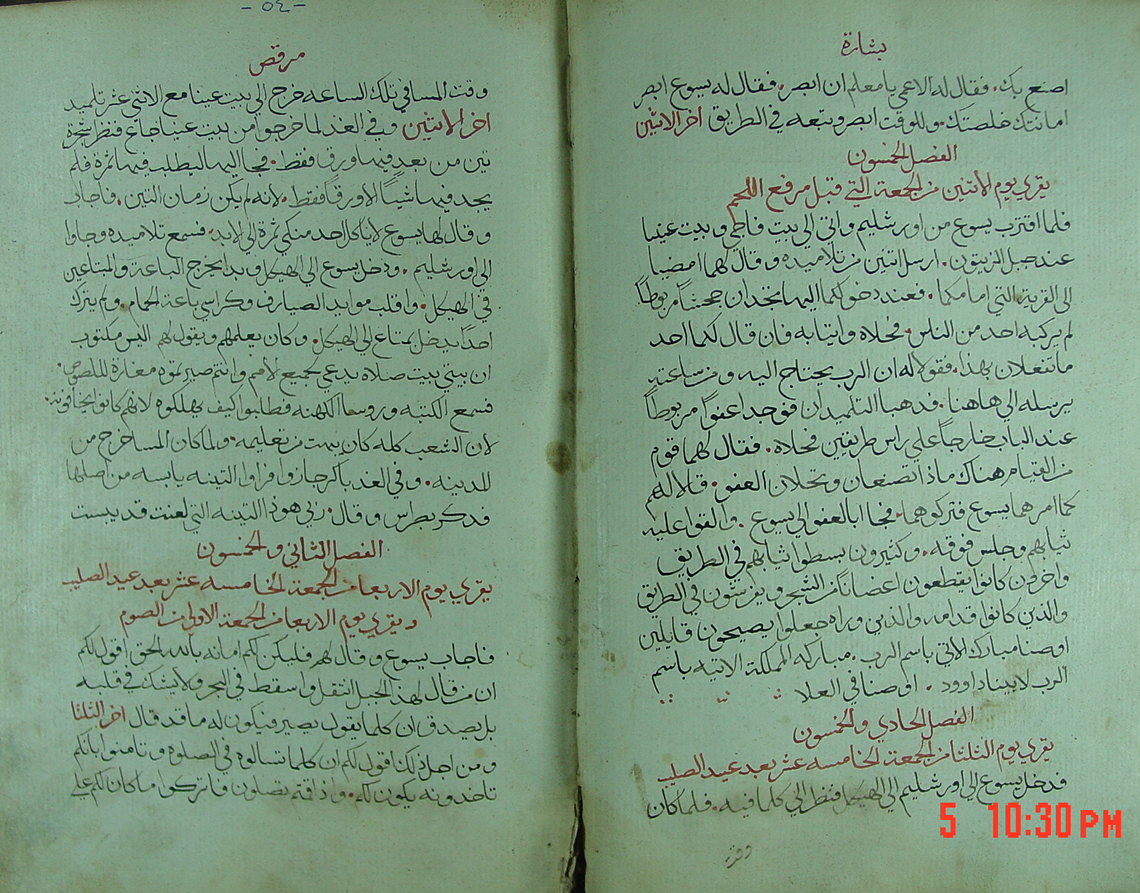 بشارة
اصنع بك. فقال له الاعمي يا معلم ان ابصر. فقال له يسوع ابصر
امانتك خلصتك. وللوقت ابصر وتبعه في الطريق اخر الاثنين
الفصل الخمسون
يقري يوم الاثنين من الجمعة التي قبل مرفع اللحم
فلما اقترب يسوع من اورشليم واتي الي بيت فاجي وبيت عنيا
عند جبل الزيتون. ارسل اثنين من تلاميذه وقال لهما امضيا
الى القرية التي امامكما. فعند دخولكما اليها تجدان جحشا مربوطاً
لم يركبه احد من الناس. فحلاه واتيا به فان قال لكما احد
ما تفعلان بهذا. فقولا له ان الرب يحتاج اليه ومن ساعته
يرسله الي هاهنا. فدهبا التلميدان فوجدا عفواً مربوطاً
عند الباب خارجاً على راس طريقين فحلاه. فقال لهما قوم
من القيام هناك ماذا تصنعان وتحلان العفو. قالا لهم
كما امرهما يسوع فتركوهما. فجاا بالعفو الي يسوع. والقوا عليه
ثيابهم وجلس فوقه. وكثيرون بسطوا ثيابهم في الطريق
واخرون كانوا يقطعون اغضاناً من الشجر ويفرشون في الطريق
والذين كانوا قدامه والذين وراه جعلوا يصيحون قايلين
اوصنا مبارك الاتي باسم الرب. مباركه المملكة الاتيه باسم
الرب لابينا داوود. اوصنا في العلا
الفصل الحادي والخمسون
يقري يوم الثلثا من الجمعة الخامسه عشر بعد عيد الصليب
فدخل يسوع الي اورشليم الي الهيكل فنظر الي كلما فيه. فلما كان
- ٥٤ -
مرقص
وقت المسا في تلك الساعه خرج الي بيت عينا مع الاثني عشر تلميد
اخر الاثنين وفي الغد لما خرجوا من بيت عينا جاع فنظر شجرة
تين من بعد فيها ورق فقط. فجا اليها ليطلب فيها ثمرة فلم
يجد فيها شياً الا ورقاً فقط. لانه لم يكن زمان التين. فاجاب
وقال لها يسوع لا ياكل احد منكي ثمرة الي الابد. فسمع تلاميذه وجاوا
الى اورشليم. ودخل يسوع الي الهيكل وبدا يخرج الباعة والمبتاعين
في الهيكل. واقلب موايد الصيارف وكراسي باعة الحمام. ولم يترك
احداً يدخل بمتاع الي الهيكل. وكان يعلمهم ويقول لهم اليس مكتوب
ان بيتي بيت صلاه يدعي لجميع الامم وانتم صيرتموه مغارة للصوص.
فسمع الكتبه وروسا الكهنه فطلبوا كيف يهلكوه لانهم كانوا يخافونه
لان الشعب كله كان يبهت من تعليمه. ولما كان المسا خرج من
المدينه. وفي الغد باكر جازوا فراوا التينه يابسه من اصلها
فدكر بطراس وقال. ربي هوذا التينه التي لعنت قد يبست
الفصل الثاني والخمسون
يقري يوم الاربعا من الجمعة الخامسه عشر بعد عيد الصليب
ويقري يوم الاربعا من الجمعة الاولي من الصوم
فاجاب يسوع وقال لهم فليكن لكم امانه بالله الحق اقول لكم
ان من قال لهذ الجبل انتقل واسقط في البحر ولا يشك في قلبه
بل يصدق ان كلما يقول يصير فيكون له ما قد قال اخر الثلثا
ومن اجل ذلك اقول لكم ان كلما تسالوه في الصلوه وتامنوا بانكم
تاخدونه يكون لكم. واذا قمتم تصلون فاتركوا ما كان لكم علي
5 10:30 PM